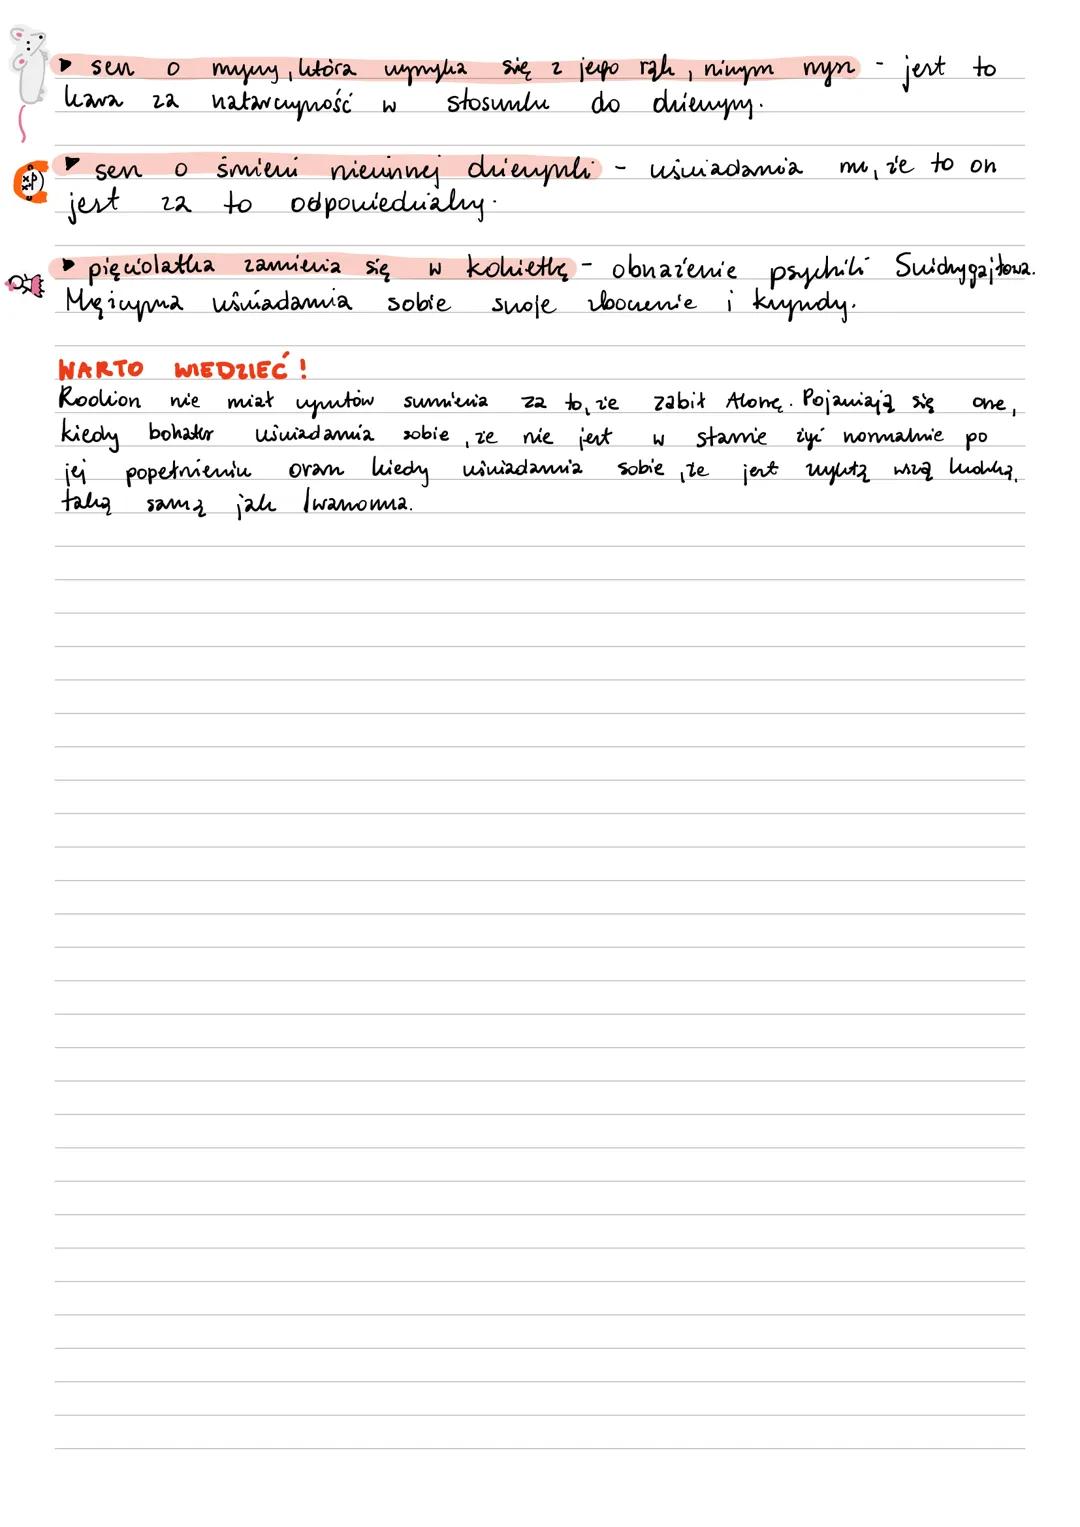 ▸ sen o myszy, która wymyka się z jego rąk, niczym mysz - jest to
kara za natarczywość w stosunku do dziewczyny.
▸ sen o śmierci niewinnej dziewczynki - uświadamia mu, że to on
jest za to odpowiedzialny.
▸ pięciolatka zamienia się w kobietkę - obnażenie psychiki Swidrygajłowa.
Mężczyzna uświadamia sobie swoje zboczenie i krzywdy.
WARTO WIEDZIEĆ!
Rodion nie miał wyrzutów sumienia za to, że zabił Alonę. Pojawiają się one,
kiedy bohater uświadamia sobie, że nie jest w stanie żyć normalnie po
jej popełnieniu oraz kiedy uświadamia sobie, że jest zwykłą wszą ludzką,
taką samą jak Iwanowna.